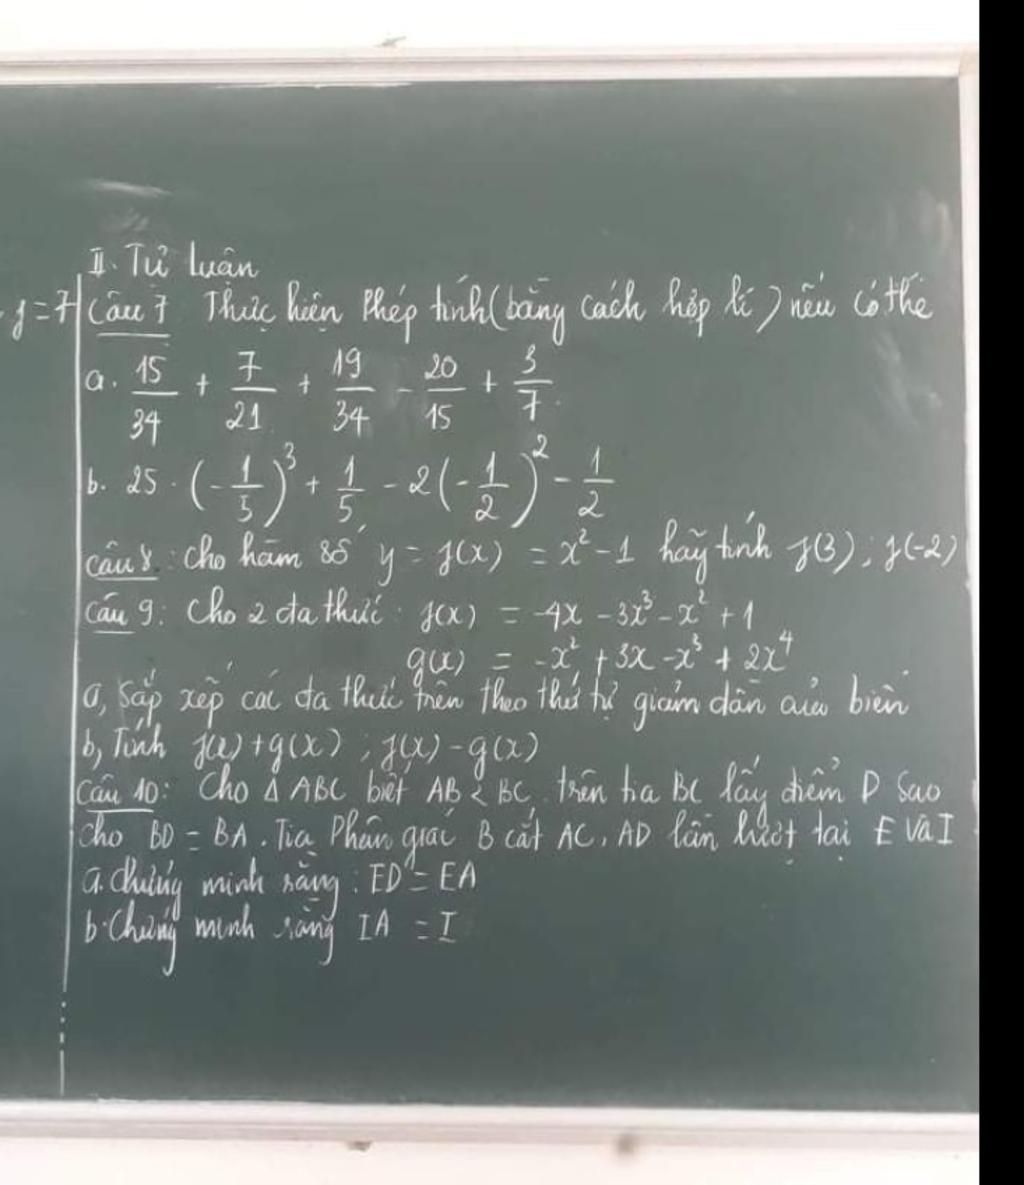 II. Tự luận
y=7
Câu 7 Thực hiện Phép tính (bằng cách hợp lí) nếu có thể
a. 15/34 + 7/21 + 19/34 - 20/15 + 3/7
b. 25 . (-1/5)³ + 1/5 - 2(-1/2)² - 1/2
câu 8: cho hàm số y = f(x) = x² - 1 hãy tính f(3); f(-2)
Câu 9: Cho 2 đa thức: f(x) = -4x - 3x³ - x² + 1
g(x) = -x² + 3x - x³ + 2x⁴
a, sắp xếp các đa thức trên theo thứ tự giảm dần của biến
b, Tính f(x)+g(x) ; f(x)-g(x)
Câu 10: Cho Δ ABC biết AB < BC. trên tia BC lấy điểm D sao
cho BD = BA. Tia Phân giác B cắt AC, AD lần lượt tại E và I
a. chứng minh rằng: ED = EA
b. Chứng minh rằng IA = I